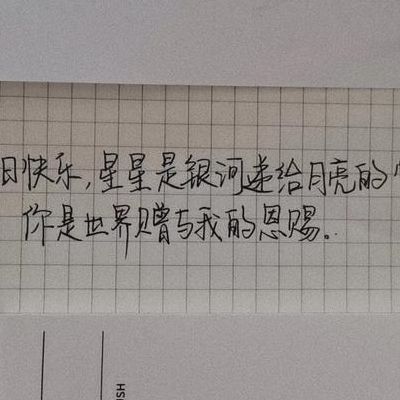 日快乐,星星是银河递给月亮的
你是世界赠与我的恩赐。
HSI